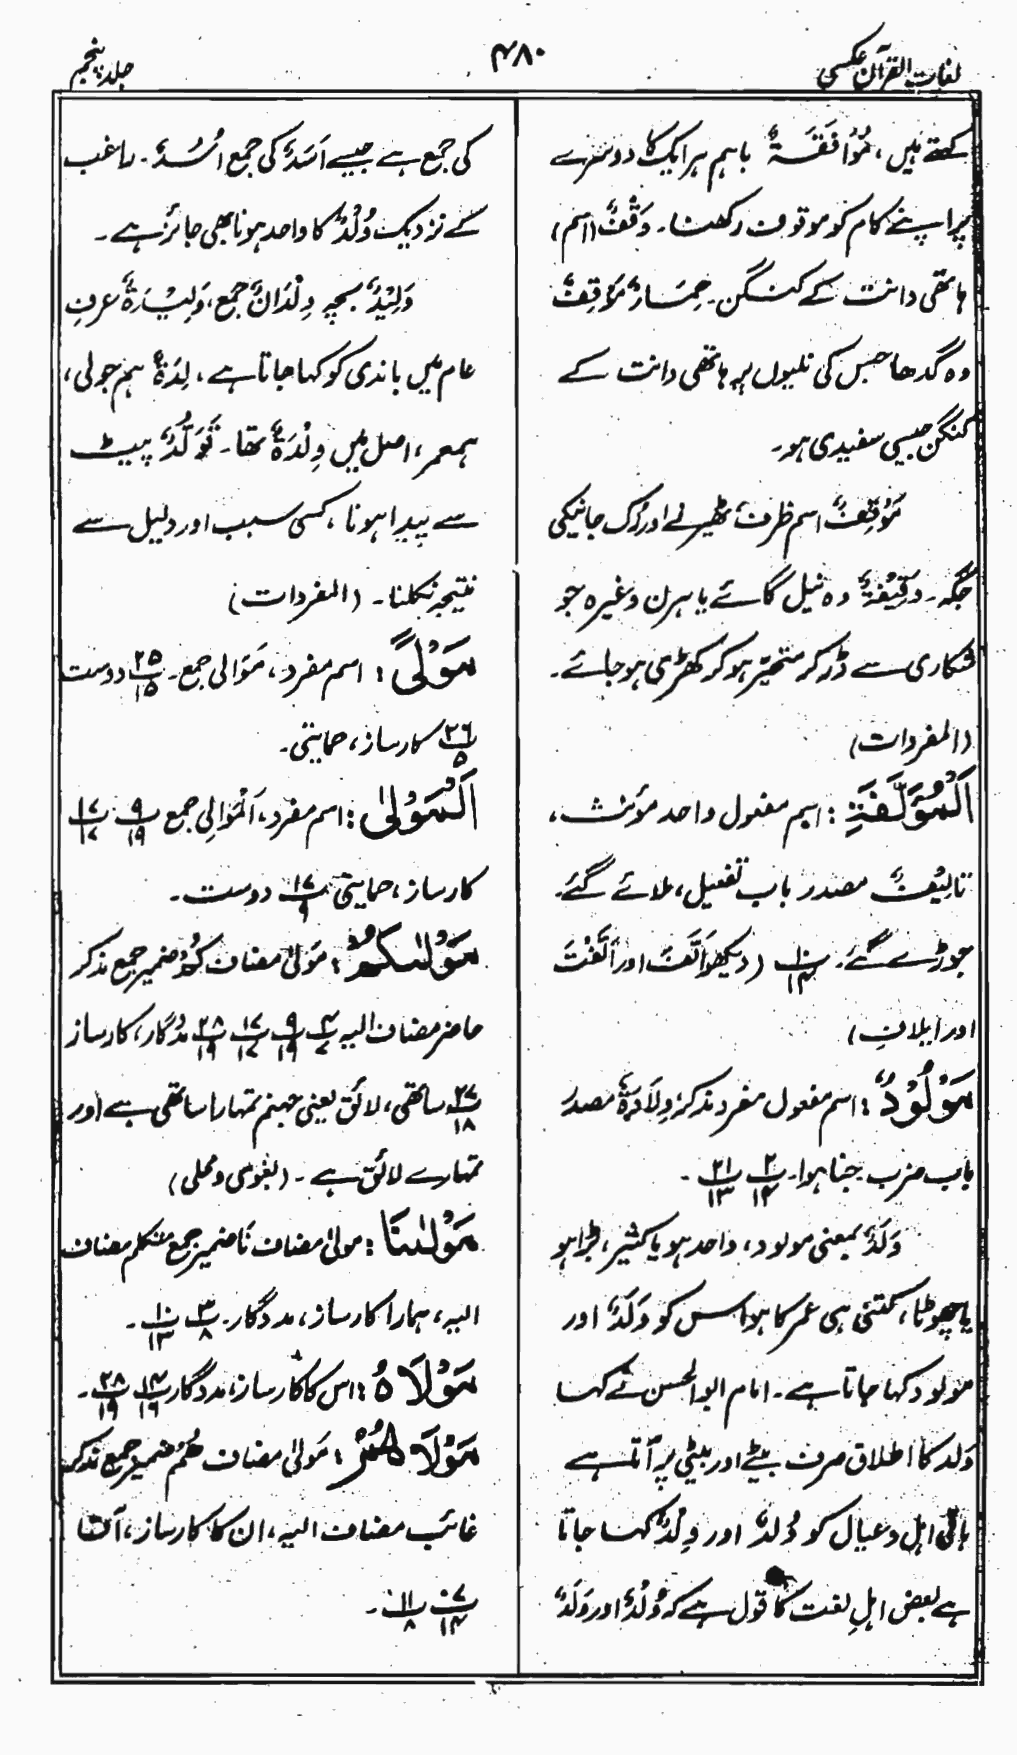 لغات القرآن عکسی
۴۸۰
جلد پنجم
کہتے ہیں، مُوَافَقَۃٌ باہم ہر ایک کا دوسرے
پر اپنے کام کو موقوف رکھنا۔ وَقْفٌ (اسم)
ہاتھی دانت کے کنگن۔ حِمَارٌ مُوَقَّفٌ
وہ گدھا جس کی نلیوں پر ہاتھی دانت کے
کنگن جیسی سفیدی ہو۔
مَوْقِفٌ اسم ظرف ٹھیرنے اور رک جانیکی
جگہ۔ وَقِیْفَۃٌ وہ نیل گائے یا ہرن وغیرہ جو
شکاری سے ڈر کر متحیر ہو کر کھڑی ہو جائے۔
(المفردات)
اَلْمُؤَلَّفَۃِ : اسم مفعول واحد مؤنث،
تالِیْفٌ مصدر باب تفعیل، ملائے گئے۔
جوڑے گئے۔ پ۱۰/۱۴ (دیکھو اَلَّفَ اور اَلَّفْتَ
اور ایلاف)
مَوْلُوْدٌ : اسم مفعول مفرد مذکر وِلَادَۃٌ مصدر
باب ضرب۔ جنا ہوا۔ پ۲/۱۴ پ۲۱/۱۳ ۔
وَلَدٌ بمعنی مولود، واحد ہو یا کثیر، بڑا ہو
یا چھوٹا، کتنی ہی عمر کا ہو اس کو وَلَدٌ اور
مولود کہا جاتا ہے۔ امام ابو الحسن نے کہا
وَلد کا اطلاق صرف بیٹے اور بیٹی پر آتا ہے
باقی اہل و عیال کو وُلْدٌ اور وِلْدٌ کہا جاتا
ہے بعض اہلِ لغت کا قول ہے کہ وُلْدٌ اور وَلَدٌ
کی جمع ہے جیسے اَسَدٌ کی جمع اُسُدٌ۔ راغب
کے نزدیک وُلْدٌ کا واحد ہونا بھی جائز ہے۔
وَلِیْدٌ بچہ وِلْدَانٌ جمع، وَلِیْدَۃٌ عرفِ
عام میں باندی کو کہا جاتا ہے، لِدَۃٌ ہم جولی،
ہمعمر، اصل میں وِلْدَۃٌ تھا۔ تَوَلُّدٌ پیٹ
سے پیدا ہونا، کسی سبب اور دلیل سے
نتیجہ نکلنا۔ (المفردات)
مَوْلًی : اسم مفرد، مَوَالی جمع۔ پ۲۵/۱۵ دوست
پ۲۶/۵ کارساز، حمایتی۔
اَلْمَوْلٰی : اسم مفرد، اَلْمَوَالِی جمع پ۹/۱۹ پ۱۷/۱۷
کارساز، حمایتی پ۱۷/۹ دوست۔
مَوْلٰىکُمْ : مَوْلیٰ مضاف کُمْ ضمیر جمع مذکر
حاضر مضاف الیہ پ۴/۷ پ۹/۱۹ پ۱۷/۱۷ پ۲۸/۱۹ مددگار، کارساز
پ۲۷/۱۸ ساتھی، لائق یعنی جہنم تمہارا ساتھی ہے اور
تمہارے لائق ہے۔ (بغوی و محلی)
مَوْلٰىنَا : مولیٰ مضاف نَا ضمیر جمع متکلم مضاف
الیہ، ہمارا کارساز، مددگار۔ پ۳/۸ پ۱۰/۱۳ ۔
مَوْلَاہُ : اس کا کارساز، مددگار پ۱۴/۱۶ پ۲۸/۱۹ ۔
مَوْلَاھُمْ : مَوْلیٰ مضاف ھُمْ ضمیر جمع مذکر
غائب مضاف الیہ، ان کا کارساز، آقا
پ۷/۱۴ پ۱۱/۸ ۔